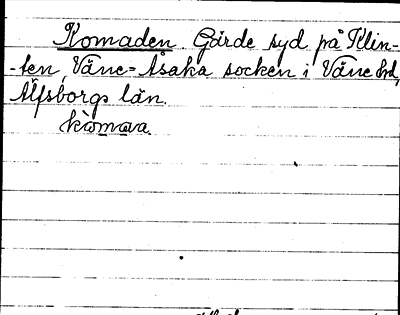 Komaden. Gärde syd på Klin-
-ten, Väne-Åsaka socken i Väne hd,
Älfsborgs län.